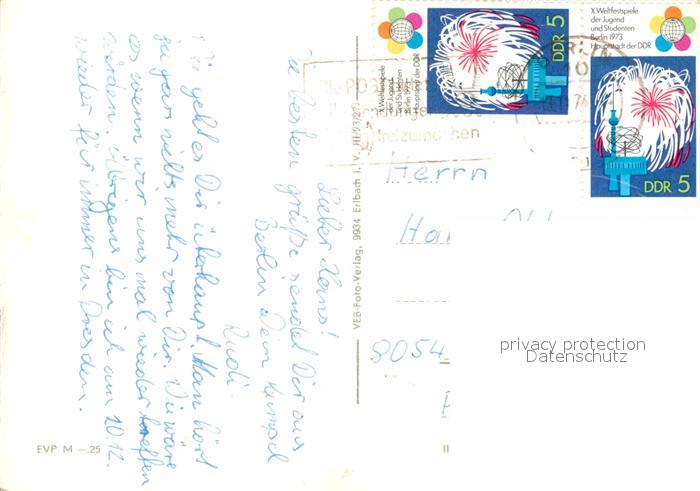 Lieber Hans!
Die besten Grüße sendet Dir aus
Berlin Dein Kumpel
Rudi.
Wie geht es Dir überhaupt? Man hört
ja gar nichts mehr von Dir. Wie wäre
es wenn wir uns mal wieder treffen
würden. Übrigens bin ich am 20.12.
wieder für immer in Dresden.
EVP M –.25
VEB-Foto-Verlag, 9934 Erlbach i. V.
X. Weltfestspiele
der Jugend
und Studenten
Berlin 1973
Hauptstadt der DDR
DDR 5
X. Weltfestspiele
der Jugend
und Studenten
Berlin 1973
Hauptstadt der DDR
DDR 5
freizumachen
Herrn
8054
privacy protection
Datenschutz